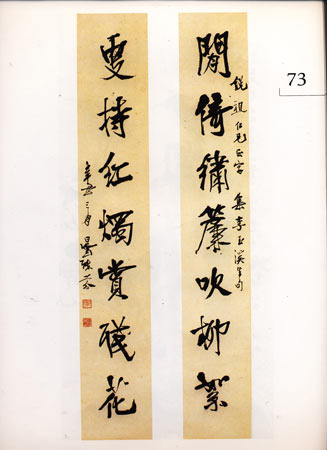 73
閒倚繡簾吹柳絮
仁兄正字 集李玉溪生句
更持紅燭賞殘花
辛丑三月